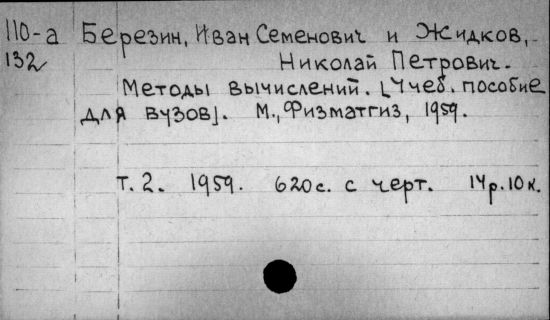 110-а Березин, Иван Семенович и Жидков,
132 Николай Петрович.
Методы вычислений. [Учеб. пособие
для вузов]. М., Физматгиз, 1959.
т. 2. 1959. 620 с. с черт. 14 р. 10 к.